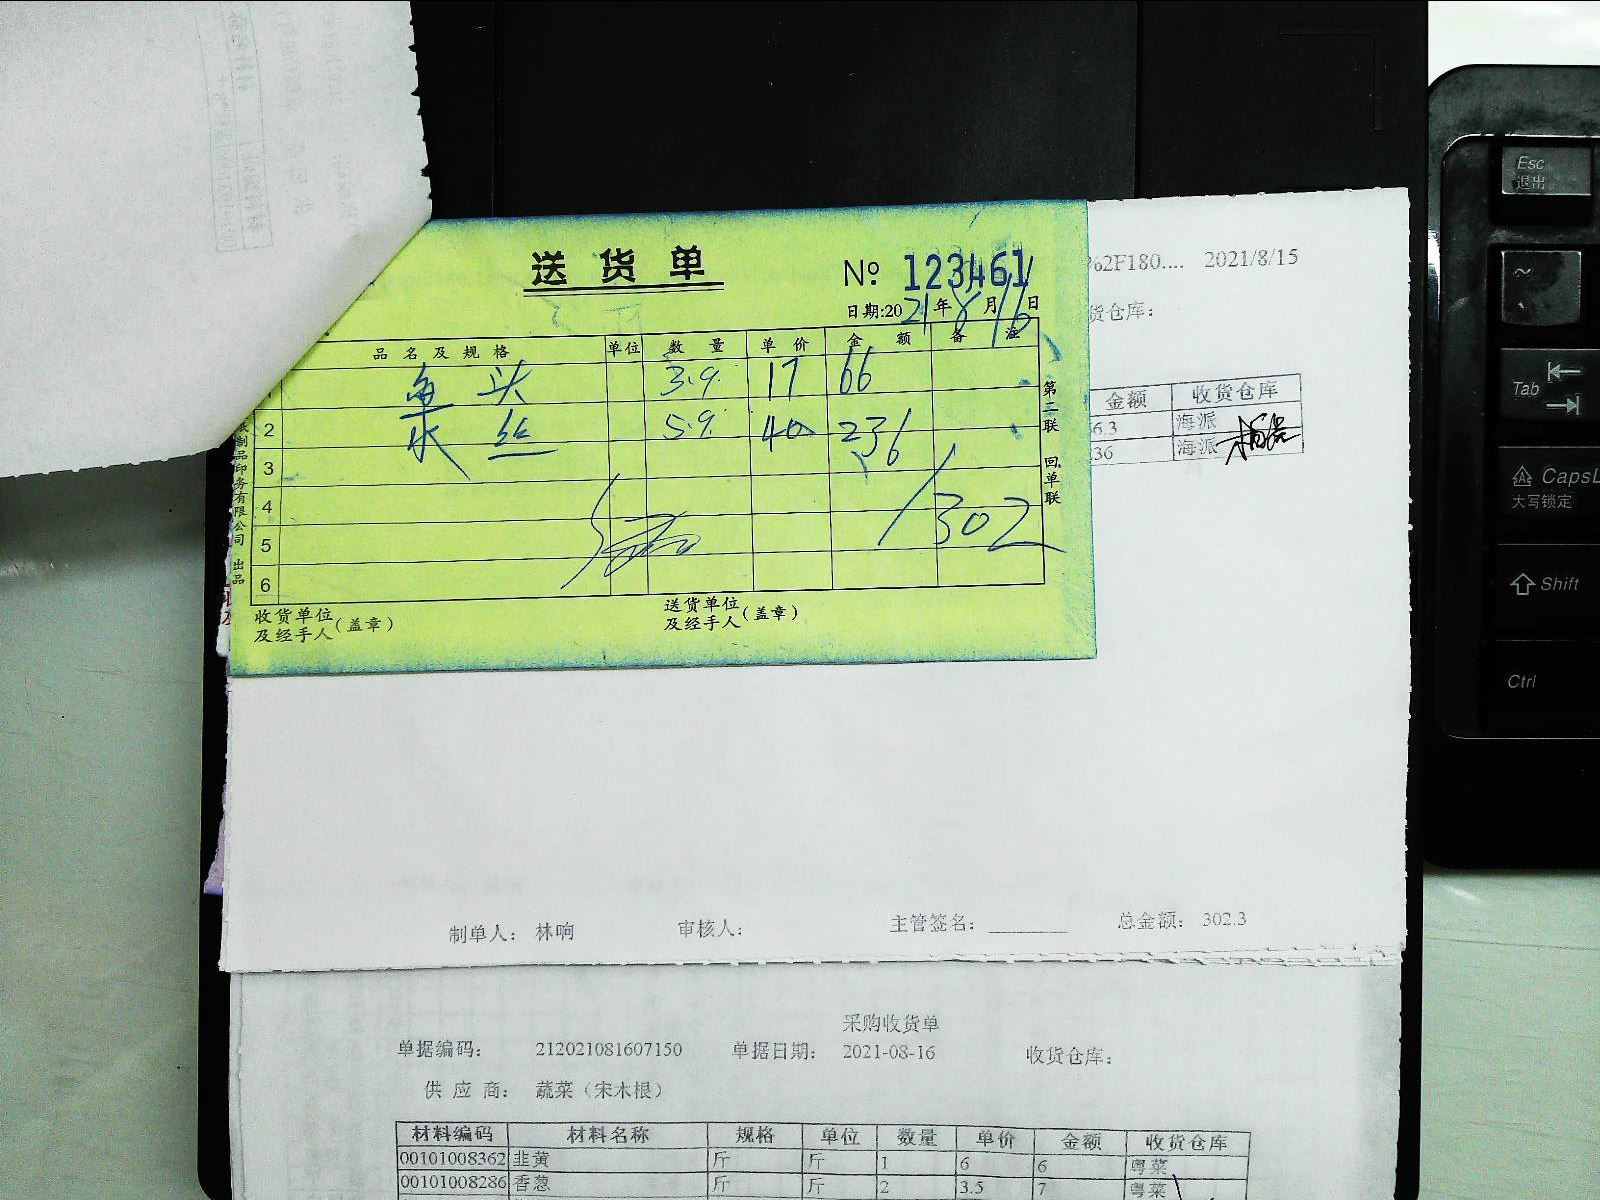 送货单
№ 123461
日期:2021年8月16日
品名及规格 单位 数量 单价 金额 备注
鱼头 3.9 17 66
2 水 丝 5.9 40 236
3
4
5
6
302
第三联 回单联
纸制品印务有限公司 出品
收货单位及经手人(盖章)
送货单位及经手人(盖章)
%62F180.... 2021/8/15
货仓库:
金额 收货仓库
6.3 海派
36 海派
制单人: 林响 审核人: 主管签名: 总金额: 302.3
采购收货单
单据编码: 212021081607150 单据日期: 2021-08-16 收货仓库:
供应商: 蔬菜（宋木根）
材料编码 材料名称 规格 单位 数量 单价 金额 收货仓库
00101008362 韭黄 斤 斤 1 6 6 粤菜
00101008286 香葱 斤 斤 2 3.5 7 粤菜
Esc
退出
~
Tab
CapsL
大写锁定
Shift
Ctrl